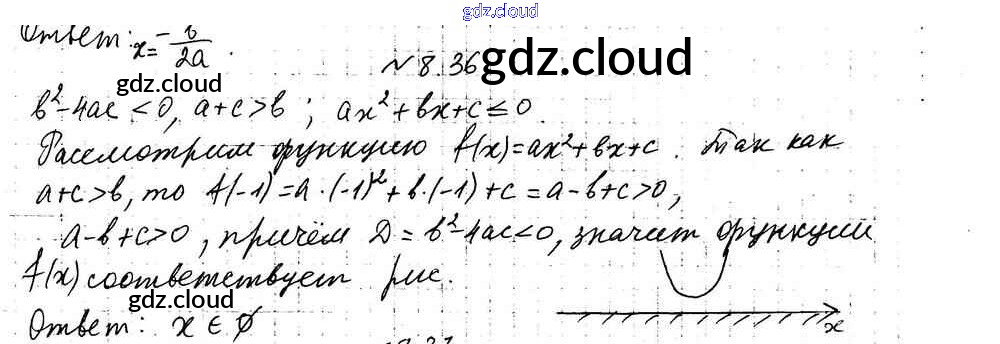 gdz.cloud
Ответ: x = -b/2a.
№ 8.36 gdz.cloud
b²-4ac<0, a+c>b; ax²+bx+c≤0.
gdz.cloud
Рассмотрим функцию f(x)=ax²+bx+c. Так как
a+c>b, то f(-1)=a·(-1)²+b·(-1)+c=a-b+c>0,
a-b+c>0, причём D=b²-4ac<0, значит функции
f(x) соответствует рис.
gdz.cloud
Ответ: x∈∅
x